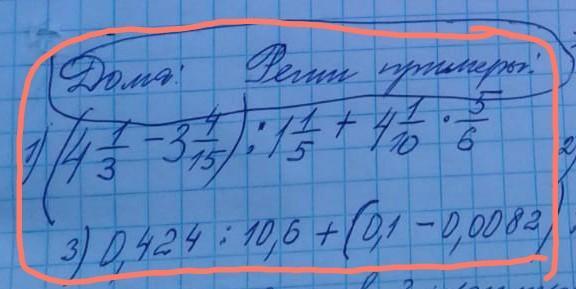 Дома: Реши примеры:
1) (4 1/3 - 3 4/15) : 1 1/5 + 4 1/10 · 5/6
2)
3) 0,424 : 10,6 + (0,1 - 0,0082)